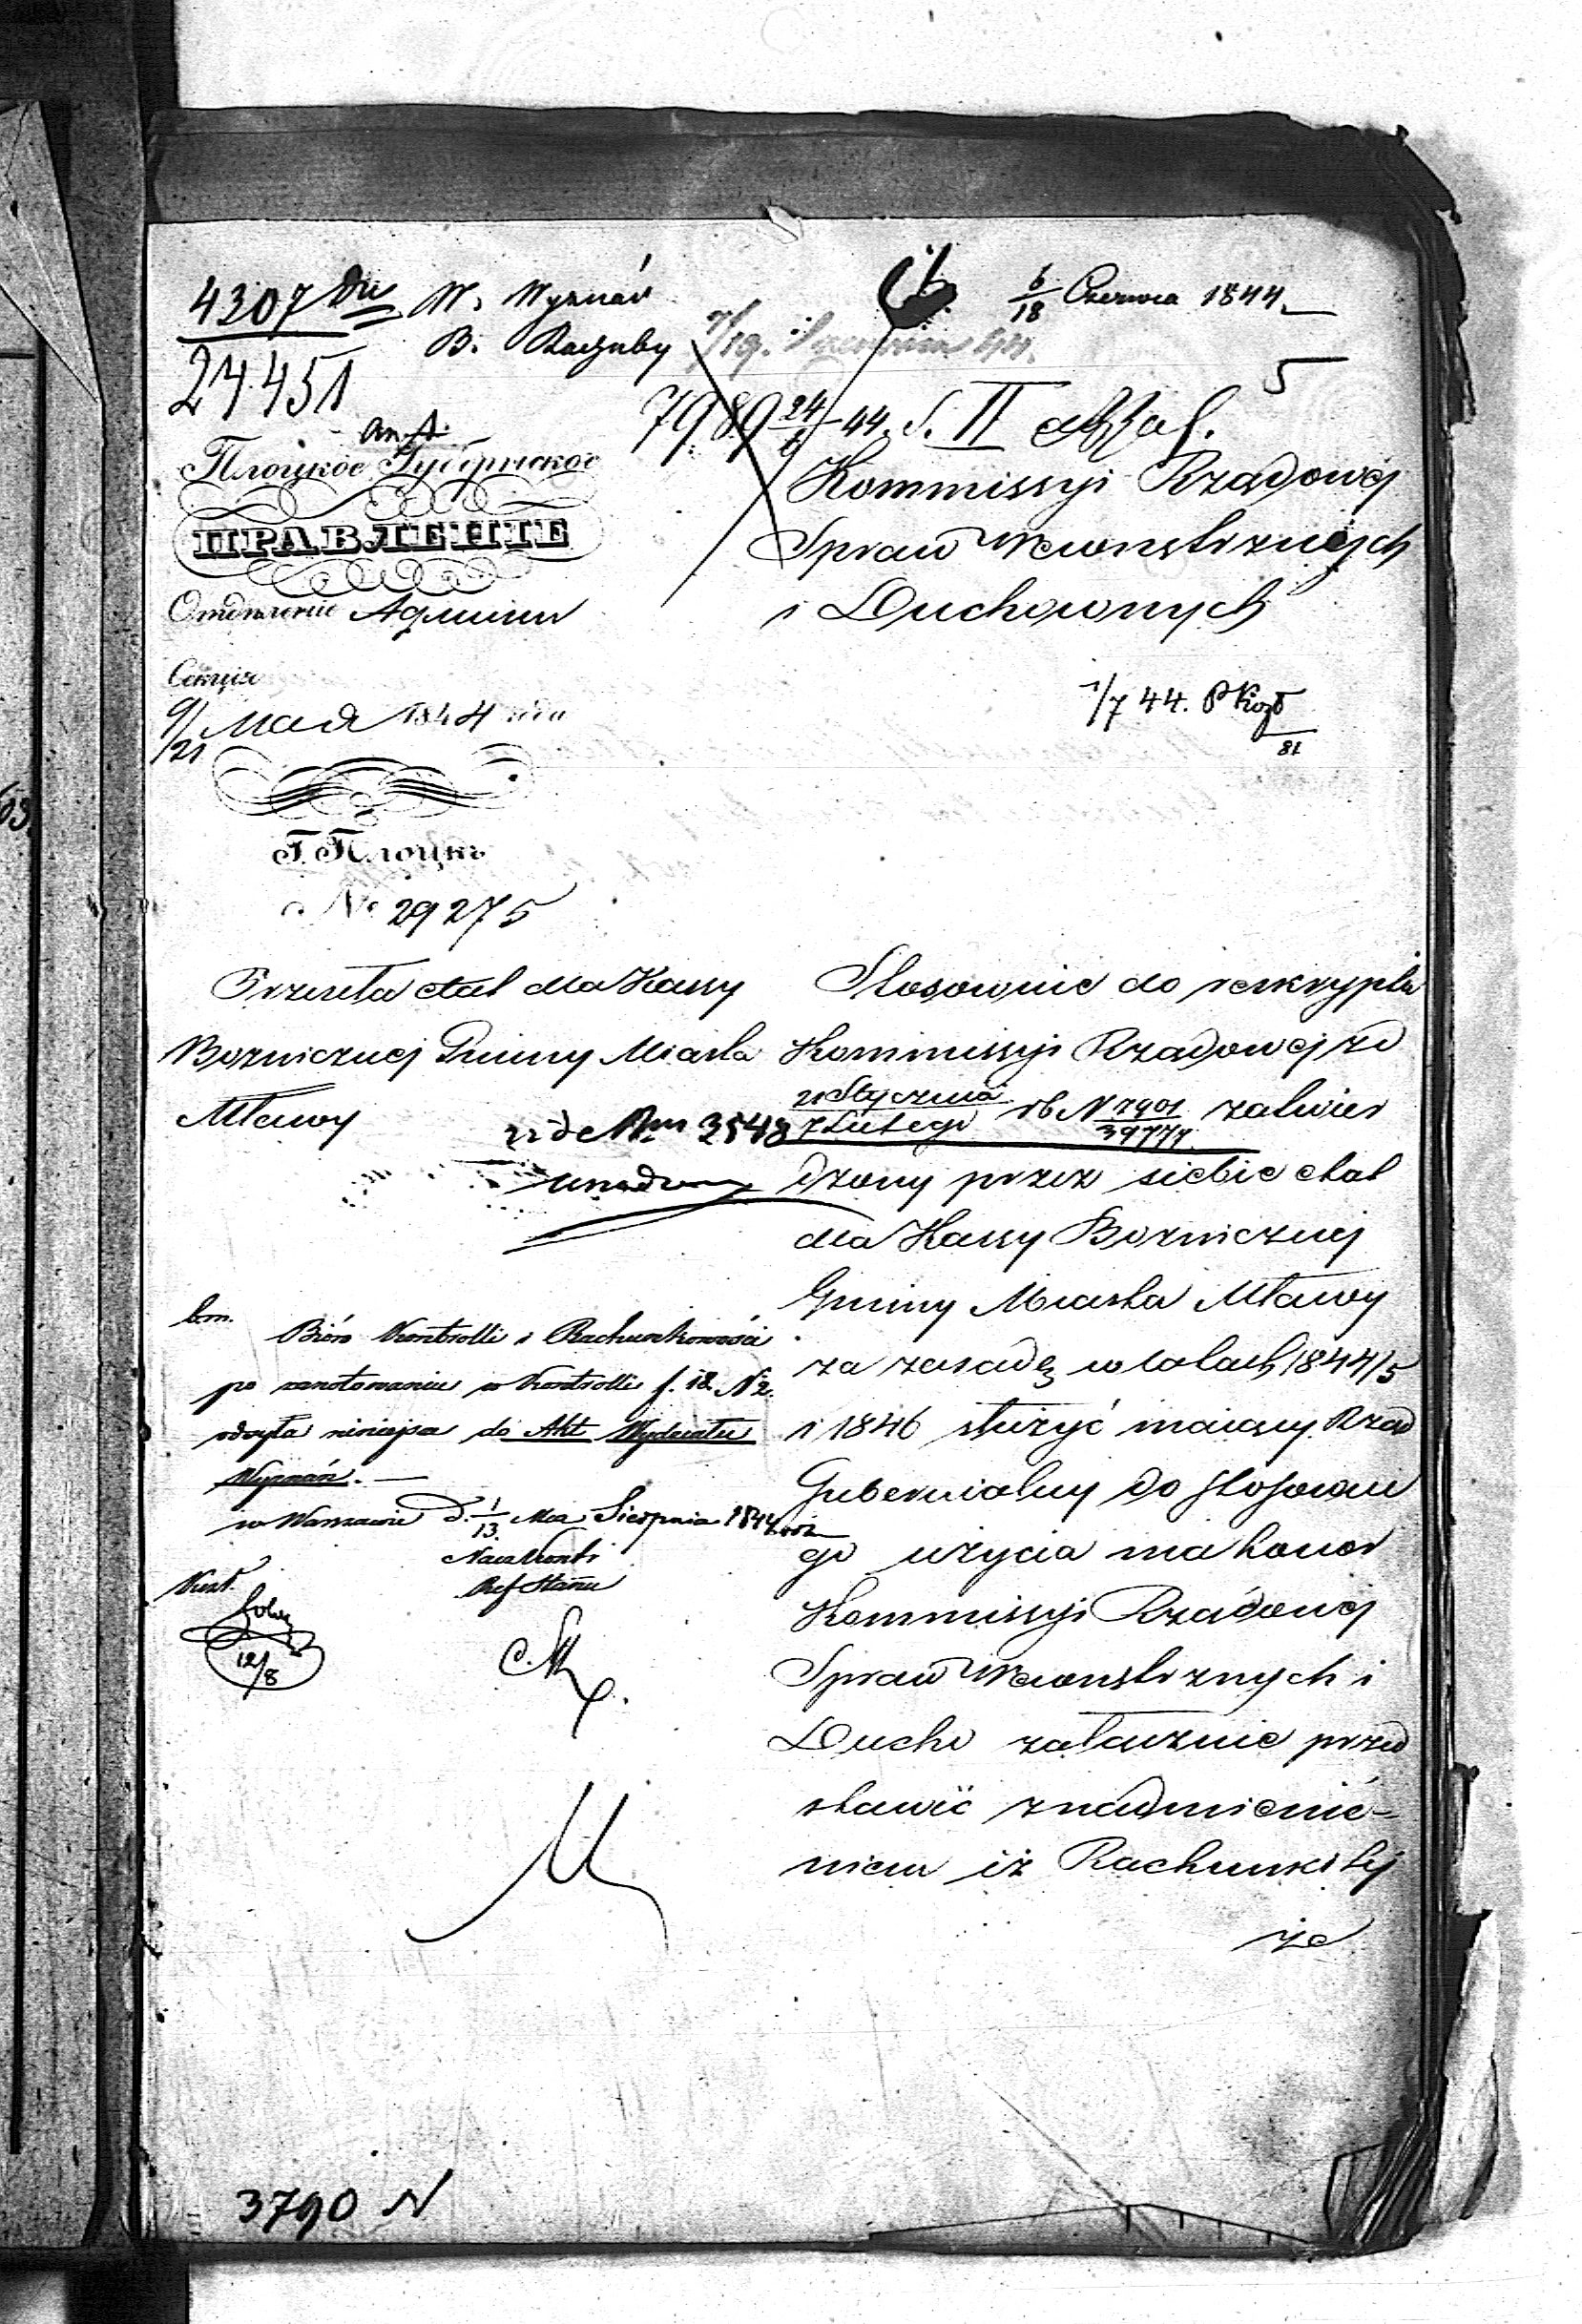 4307
W. Wyznań
6/18 Czerwca 1844
24451
B. Rachuby
5
7989 24/6 44. S. II
Плоцкое Губернское
ПРАВЛЕНІЕ
Отдѣленіе Админ
Секція
9/21 Мая 1844 года
Г. Плоцкъ
№ 29275
Kommissyi Rządowej
Spraw Wewnetrznych
i Duchownych
1/7 44.
81
Przesyła etat dla Kassy
Boznicznej Gminy Miasta
Mławy
vide Nrm 3548
Stosownie do reskryptu
Kommissyi Rządowej zd
21 Stycznia
7 Lutego rb N 7901
39777 zatwier
dzony przez siebie etat
dla Kassy Bozniczney
Gminy Miasta Mławy
za zasadę w latach 1844/5
i 1846 służyć maiący Rząd
Gubernialny do stosowne
go użycia ma honor
Kommissyi Rządowej
Spraw Wewnstrznych i
Ducho załącznie przed
stawić z nadmienie-
niem iż Rachunki tej
że
Bióro Kontrolli i Rachunkowości
po zanotowaniu w Kontrolli f. 18. N 2.
odsyła niniejsze do Akt Wydziału
Wyznań. —
w Warszawie d. 1/13 Mca Sierpnia 1844 r.
Nacz Kontr
Ref Stanu
12/8
3790 N